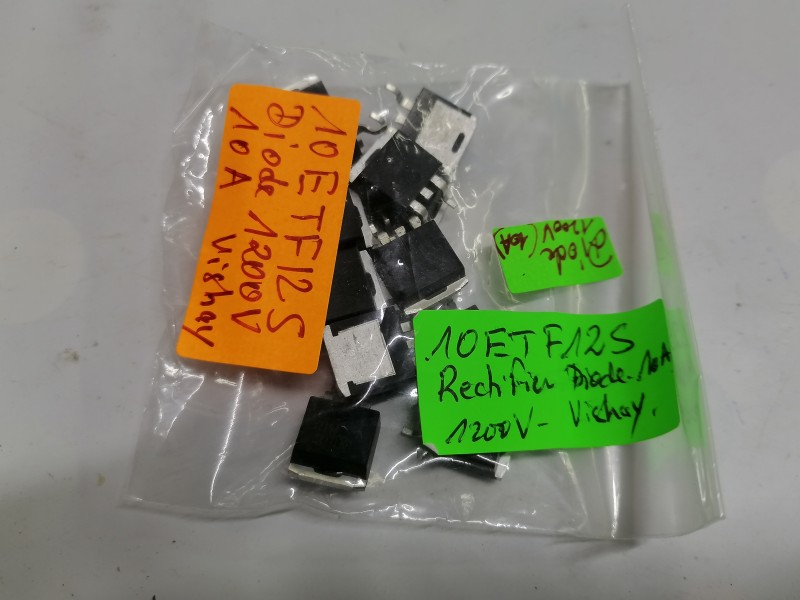 10ETF12S
Diode 1200V
10A Vishay
Diode
1200V (10A)
10ETF12S
Rectifier Diode 10A
1200V - Vishay.